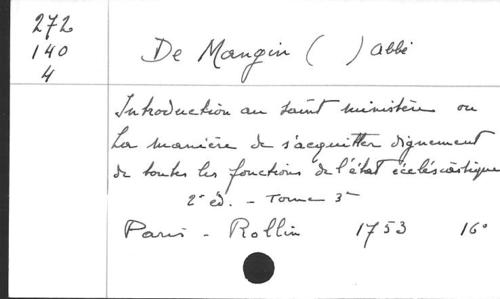 272
140
4
De Mangin ( ) abbé
Introduction au saint ministère ou
La manière de s'acquitter dignement
de toutes les fonctions de l'état écclésiastique
2e éd. - Tome 3e
Paris - Rollin 1753 16°